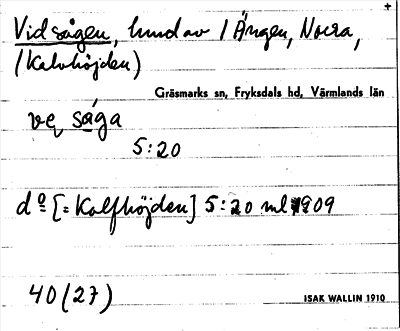 Vid sågen, hund av / Ängen, Norra,
(Kalvhöjden)
Gräsmarks sn, Fryksdals hd, Värmlands län
ve sága
5:20
do [= Kalfhöjden] 5:20 ml 1909
40 (27)
ISAK WALLIN 1910